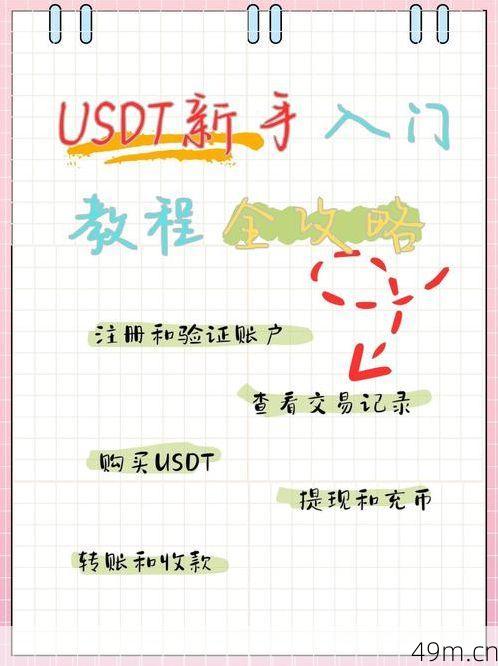 USDT新手入门
教程全攻略
注册和验证账户
查看交易记录
购买USDT
提现和充币
转账和收款
49m.cn